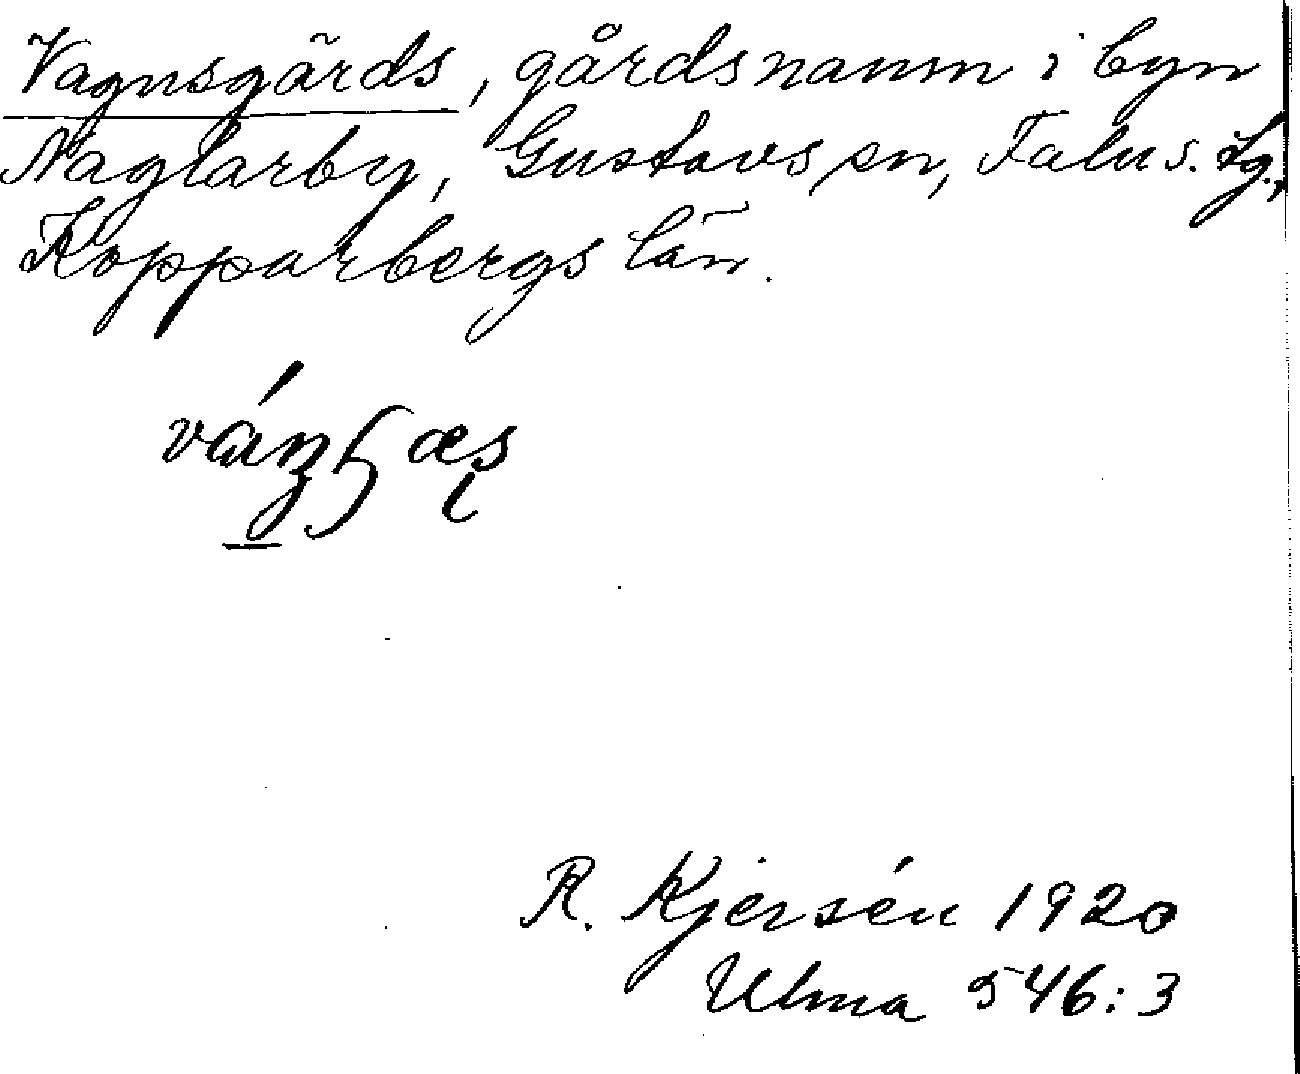 Vagnsgärds, gårdsnamn i byn
Naglarby, Gustavs sn, Falu s. tg.,
Kopparbergs län.
R. Kjersén 1920
Ulma 546:3